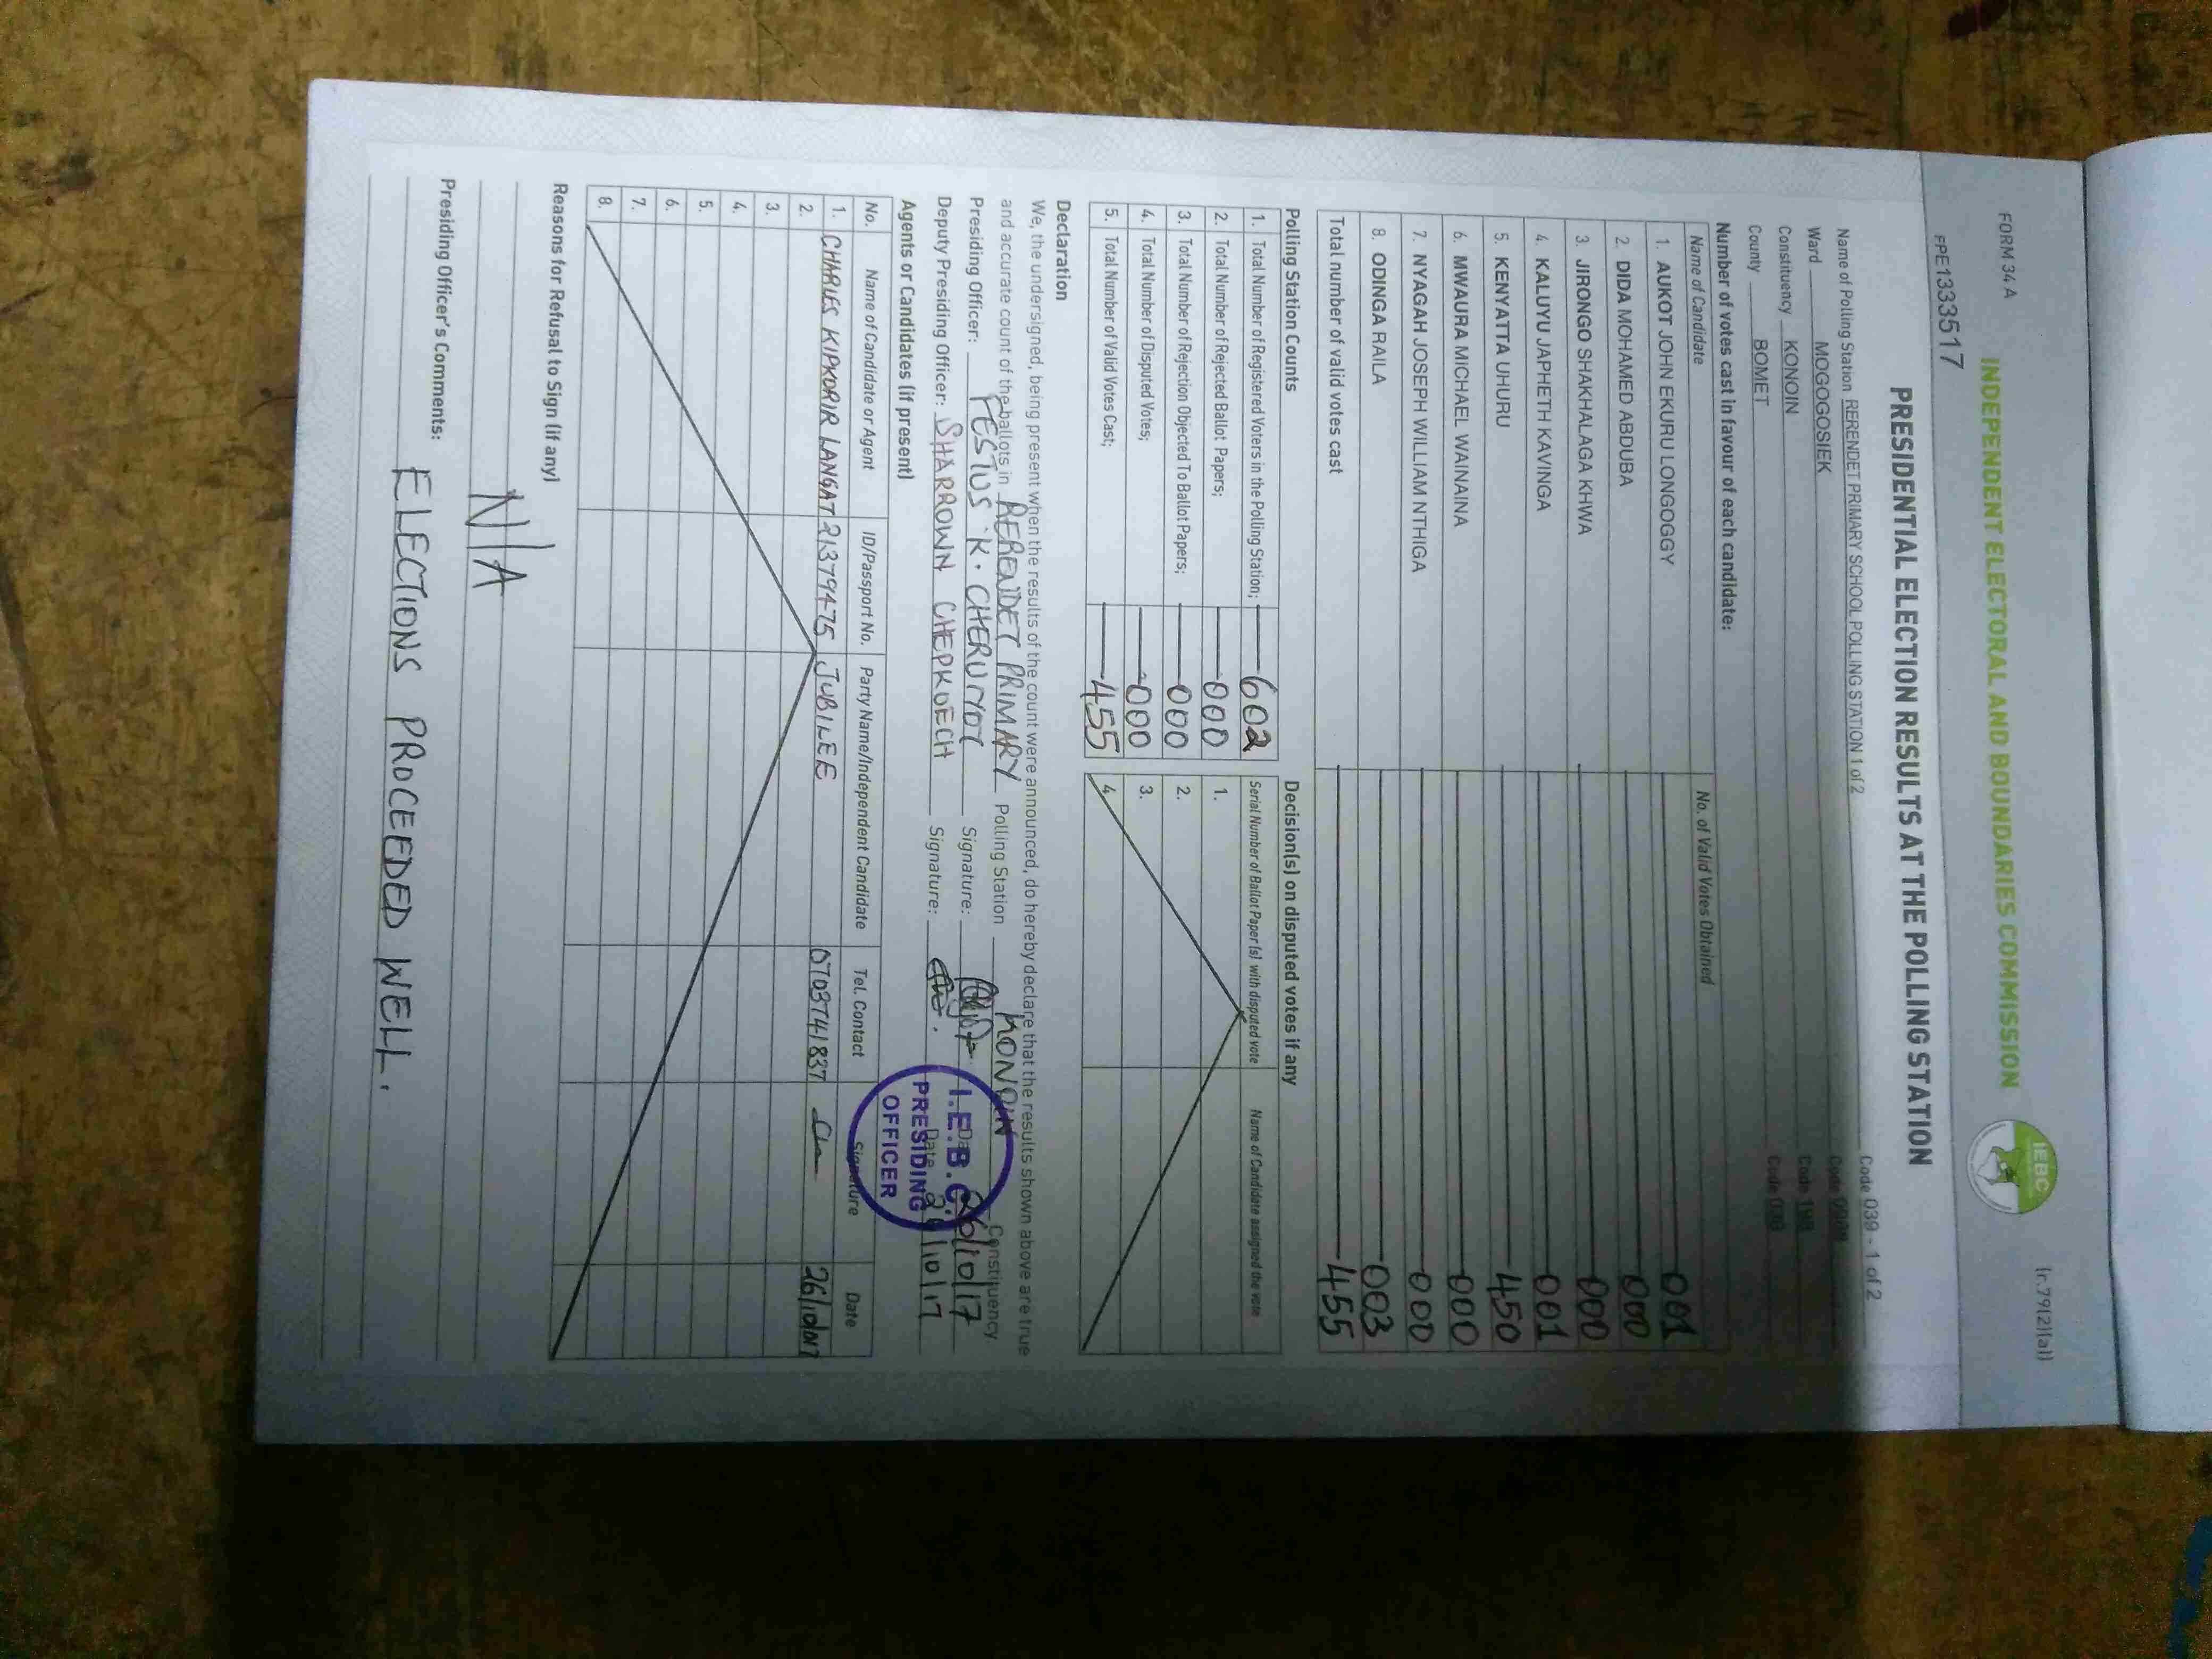 FORM 34 A
(r.79(2)(a))
INDEPENDENT ELECTORAL AND BOUNDARIES COMMISSION
IEBC
PPE1333517
PRESIDENTIAL ELECTION RESULTS AT THE POLLING STATION
Name of Polling Station RERENDET PRIMARY SCHOOL POLLING STATION 1 of 2 Code 039 - 1 of 2
Ward MOGOGOSIEK Code
Constituency KONOIN Code
County BOMET Code
Number of votes cast in favour of each candidate:
Name of Candidate No. of Valid Votes Obtained
1. AUKOT JOHN EKURU LONGOGGY 001
2. DIDA MOHAMED ABDUBA 000
3. JIRONGO SHAKHALAGA KHWA 000
4. KALUYU JAPHETH KAVINGA 001
5. KENYATTA UHURU 450
6. MWAURA MICHAEL WAINAINA 000
7. NYAGAH JOSEPH WILLIAM NTHIGA 000
8. ODINGA RAILA 003
Total number of valid votes cast 455
Polling Station Counts
1. Total Number of Registered Voters in the Polling Station; 602
2. Total Number of Rejected Ballot Papers; 000
3. Total Number of Rejection Objected To Ballot Papers; 000
4. Total Number of Disputed Votes; 000
5. Total Number of Valid Votes Cast; 455
Decision(s) on disputed votes if any
Serial Number of Ballot Paper (s) with disputed vote Name of Candidate assigned the vote
1.
2.
3.
4.
Declaration
We, the undersigned, being present when the results of the count were announced, do hereby declare that the results shown above are true
and accurate count of the ballots in RERENDET PRIMARY Polling Station KONOIN Constituency.
Presiding Officer: FESTUS K. CHERUIYOT Signature: Date 26/10/17
Deputy Presiding Officer: SHARROWN CHEPKOECH Signature: Date 26/10/17
I.E.B.C.
PRESIDING
OFFICER
Agents or Candidates (if present)
No. Name of Candidate or Agent ID/Passport No. Party Name/Independent Candidate Tel. Contact Signature Date
1. CHARLES KIPKORIR LANGAT 21379475 JUBILEE 0703741837 26/10/2017
2.
3.
4.
5.
6.
7.
8.
Reasons for Refusal to Sign (if any)
N/A
Presiding Officer's Comments:
ELECTIONS PROCEEDED WELL.